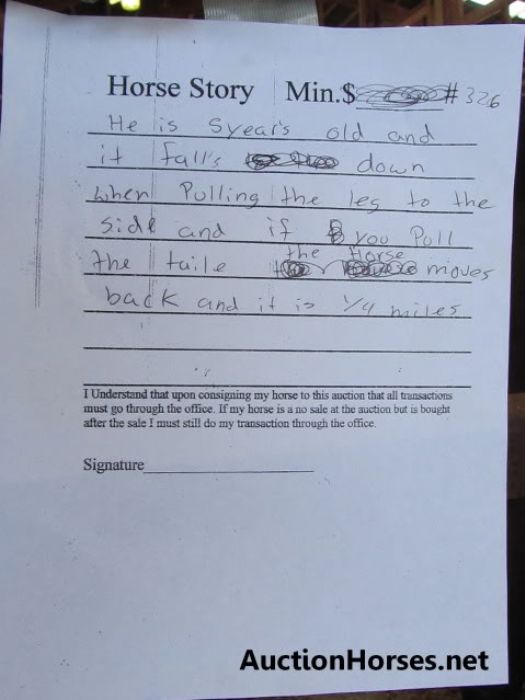 Horse Story Min.$ #326
He is 5years old and
it fall's down
when Pulling the leg to the
side and if you Pull
the taile the Horse moves
back and it is 1/4 miles
I Understand that upon consigning my horse to this auction that all transactions
must go through the office. If my horse is a no sale at the auction but is bought
after the sale I must still do my transaction through the office.
Signature
AuctionHorses.net